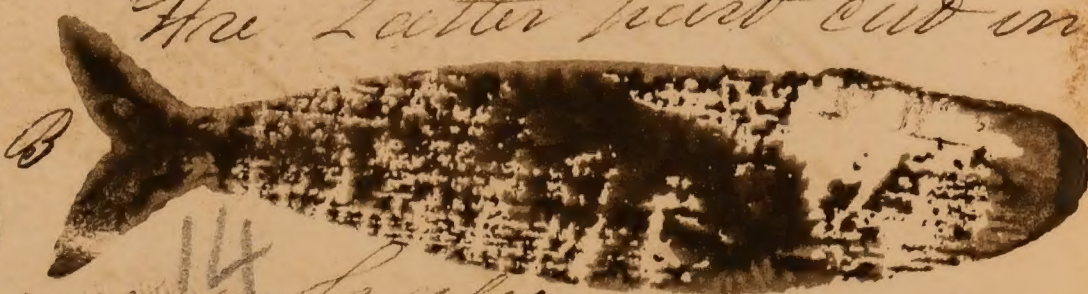 The Latter part cut in
B
14